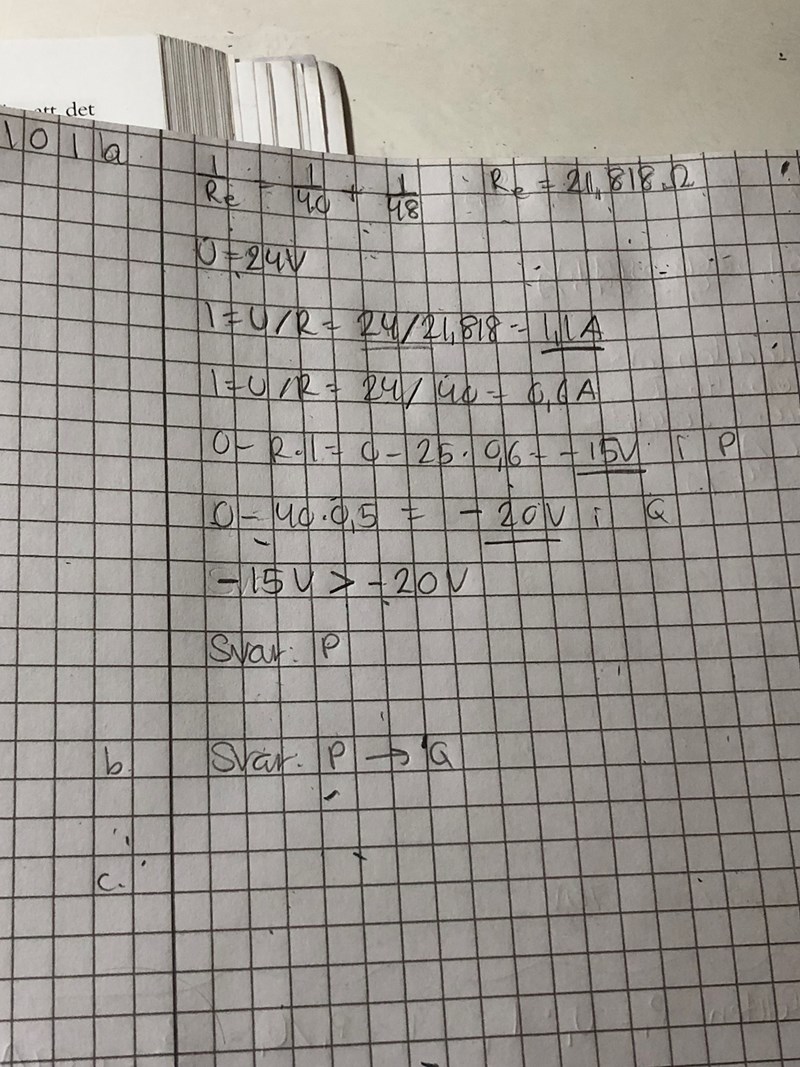 det
101a
1/Re = 1/40 + 1/48 Re = 21,818 Ω
U = 24V
I = U/R = 24/21,818 = 1,1A
I = U/R = 24/40 = 0,6A
0 - R·I = 0 - 25·0,6 = -15V i P
0 - 40·0,5 = -20V i Q
-15V > -20V
Svar: P
b. Svar: P → Q
c.